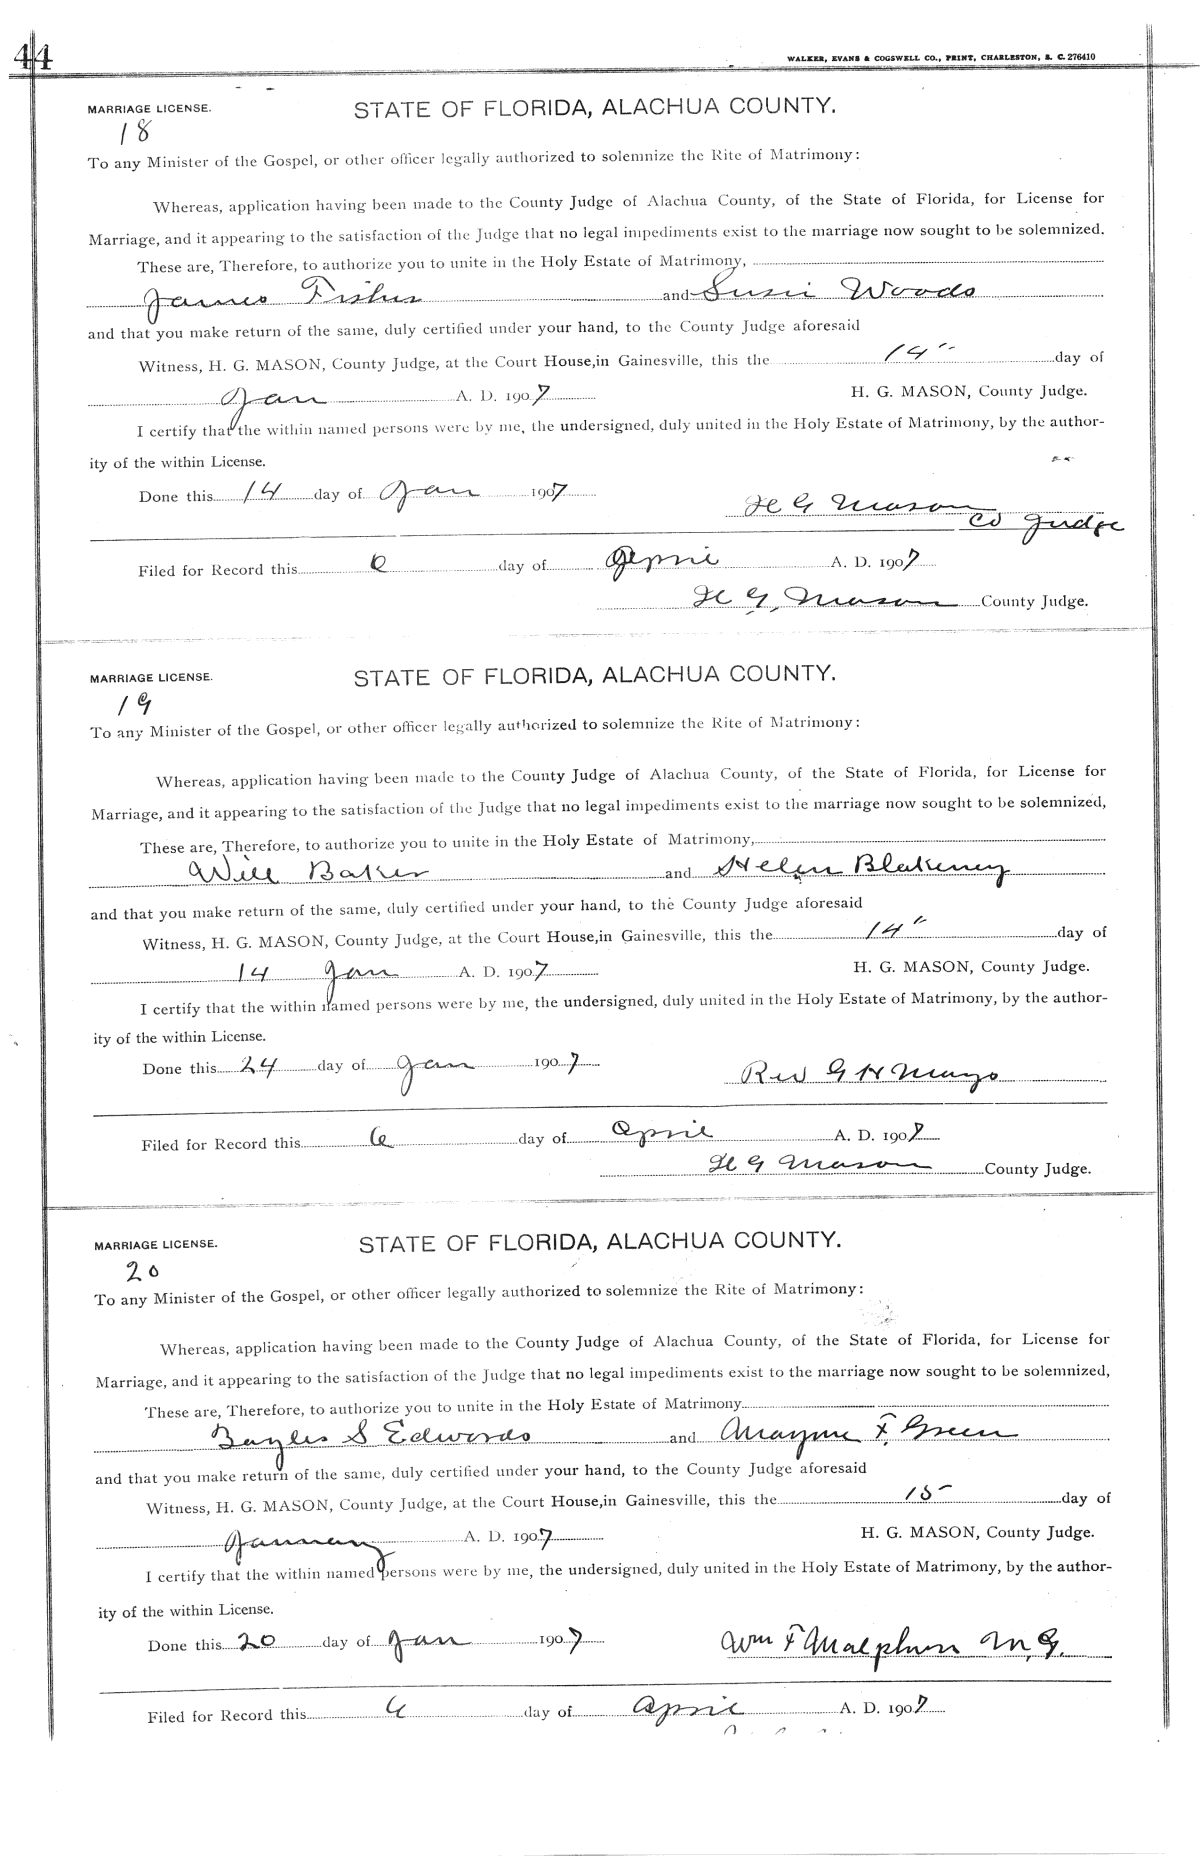 44
WALKER, EVANS & COGSWELL CO., PRINT, CHARLESTON, S. C. 276410
MARRIAGE LICENSE. STATE OF FLORIDA, ALACHUA COUNTY.
18
To any Minister of the Gospel, or other officer legally authorized to solemnize the Rite of Matrimony:
Whereas, application having been made to the County Judge of Alachua County, of the State of Florida, for License for
Marriage, and it appearing to the satisfaction of the Judge that no legal impediments exist to the marriage now sought to be solemnized.
These are, Therefore, to authorize you to unite in the Holy Estate of Matrimony,
James Fisher and Susie Woods
and that you make return of the same, duly certified under your hand, to the County Judge aforesaid
Witness, H. G. MASON, County Judge, at the Court House, in Gainesville, this the 14" day of
Jan A. D. 1907 H. G. MASON, County Judge.
I certify that the within named persons were by me, the undersigned, duly united in the Holy Estate of Matrimony, by the author-
ity of the within License.
Done this 14 day of Jan 1907 H G Mason
Co Judge
Filed for Record this 6 day of April A. D. 1907
H G. Mason County Judge.
MARRIAGE LICENSE. STATE OF FLORIDA, ALACHUA COUNTY.
19
To any Minister of the Gospel, or other officer legally authorized to solemnize the Rite of Matrimony:
Whereas, application having been made to the County Judge of Alachua County, of the State of Florida, for License for
Marriage, and it appearing to the satisfaction of the Judge that no legal impediments exist to the marriage now sought to be solemnized,
These are, Therefore, to authorize you to unite in the Holy Estate of Matrimony,
Will Baker and Helen Blakeney
and that you make return of the same, duly certified under your hand, to the County Judge aforesaid
Witness, H. G. MASON, County Judge, at the Court House, in Gainesville, this the 14" day of
14 Jan A. D. 1907 H. G. MASON, County Judge.
I certify that the within named persons were by me, the undersigned, duly united in the Holy Estate of Matrimony, by the author-
ity of the within License.
Done this 24 day of Jan 1907 Rev G H Mayo
Filed for Record this 6 day of April A. D. 1907
H G Mason County Judge.
MARRIAGE LICENSE. STATE OF FLORIDA, ALACHUA COUNTY.
20
To any Minister of the Gospel, or other officer legally authorized to solemnize the Rite of Matrimony:
Whereas, application having been made to the County Judge of Alachua County, of the State of Florida, for License for
Marriage, and it appearing to the satisfaction of the Judge that no legal impediments exist to the marriage now sought to be solemnized,
These are, Therefore, to authorize you to unite in the Holy Estate of Matrimony
Bayles S Edwards and Mayme F. Green
and that you make return of the same, duly certified under your hand, to the County Judge aforesaid
Witness, H. G. MASON, County Judge, at the Court House, in Gainesville, this the 15 day of
January A. D. 1907 H. G. MASON, County Judge.
I certify that the within named persons were by me, the undersigned, duly united in the Holy Estate of Matrimony, by the author-
ity of the within License.
Done this 20 day of Jan 1907 Wm F Malphurs M, G.
Filed for Record this 6 day of April A. D. 1907